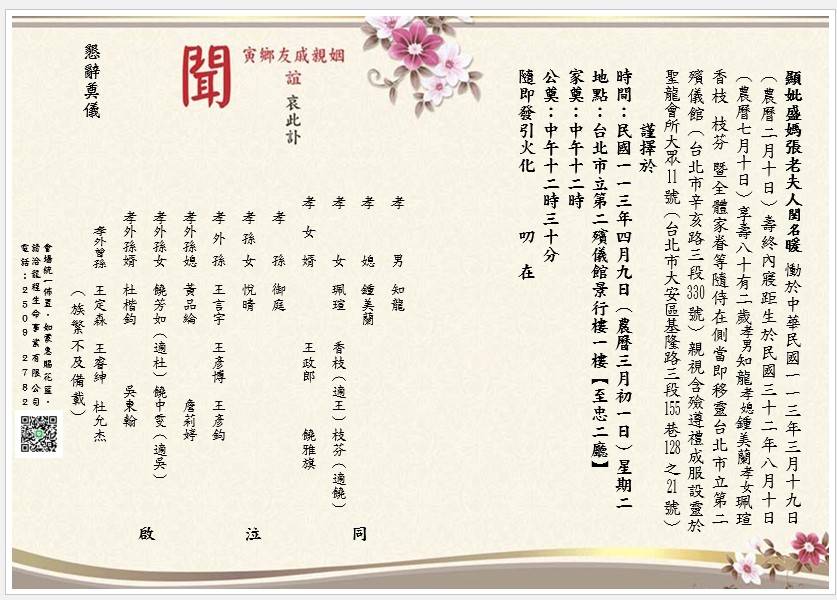 顯妣盛媽張老夫人閨名暖 慟於中華民國一一三年三月十九日
（農曆二月十日）壽終內寢距生於民國三十二年八月十日
（農曆七月十日）享壽八十有二歲孝男知龍孝媳鍾美蘭孝女珮瑄
香枝 枝芬 暨全體家眷等隨侍在側當即移靈台北市立第二
殯儀館（台北市辛亥路三段330號）親視含殮遵禮成服設靈於
聖龍會所大眾11號（台北市大安區基隆路三段155巷128之21號）
謹擇於
時間：民國一一三年四月九日（農曆三月初一日）星期二
地點：台北市立第二殯儀館景行樓一樓【至忠二廳】
家奠：中午十二時
公奠：中午十二時三十分
隨即發引火化 叨 在
姻親戚友鄉寅
誼 哀此訃
聞
懇辭奠儀
孝男 知龍
孝媳 鍾美蘭
孝女 珮瑄 香枝（適王） 枝芬（適饒）
孝女婿 王政郎 饒雅旗
孝孫 御庭
孝孫女 悅晴
孝外孫 王言宇 王彥博 王彥鈞
孝外孫媳 黃品綸 詹莉婷
孝外孫女 饒芳如（適杜） 饒中雯（適吳）
孝外孫婿 杜楷鈞 吳東翰
孝外曾孫 王定森 王睿紳 杜允杰
（族繁不及備載）
同
泣
啟
會場統一佈置，如蒙惠賜花籃，
請洽龍程生命事業有限公司
電話：2509 2782